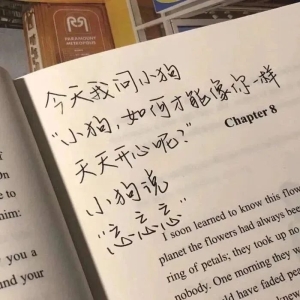 今天我问小狗
“小狗,如何才能像你一样
天天开心呢?”
小狗说
“忘忘忘”
Chapter 8
I soon learned to know this flow
planet the flowers had always been
ring of petals; they took up no
nobody. One morning they w
ould have faded pea
on
e to
him:
you a
und your